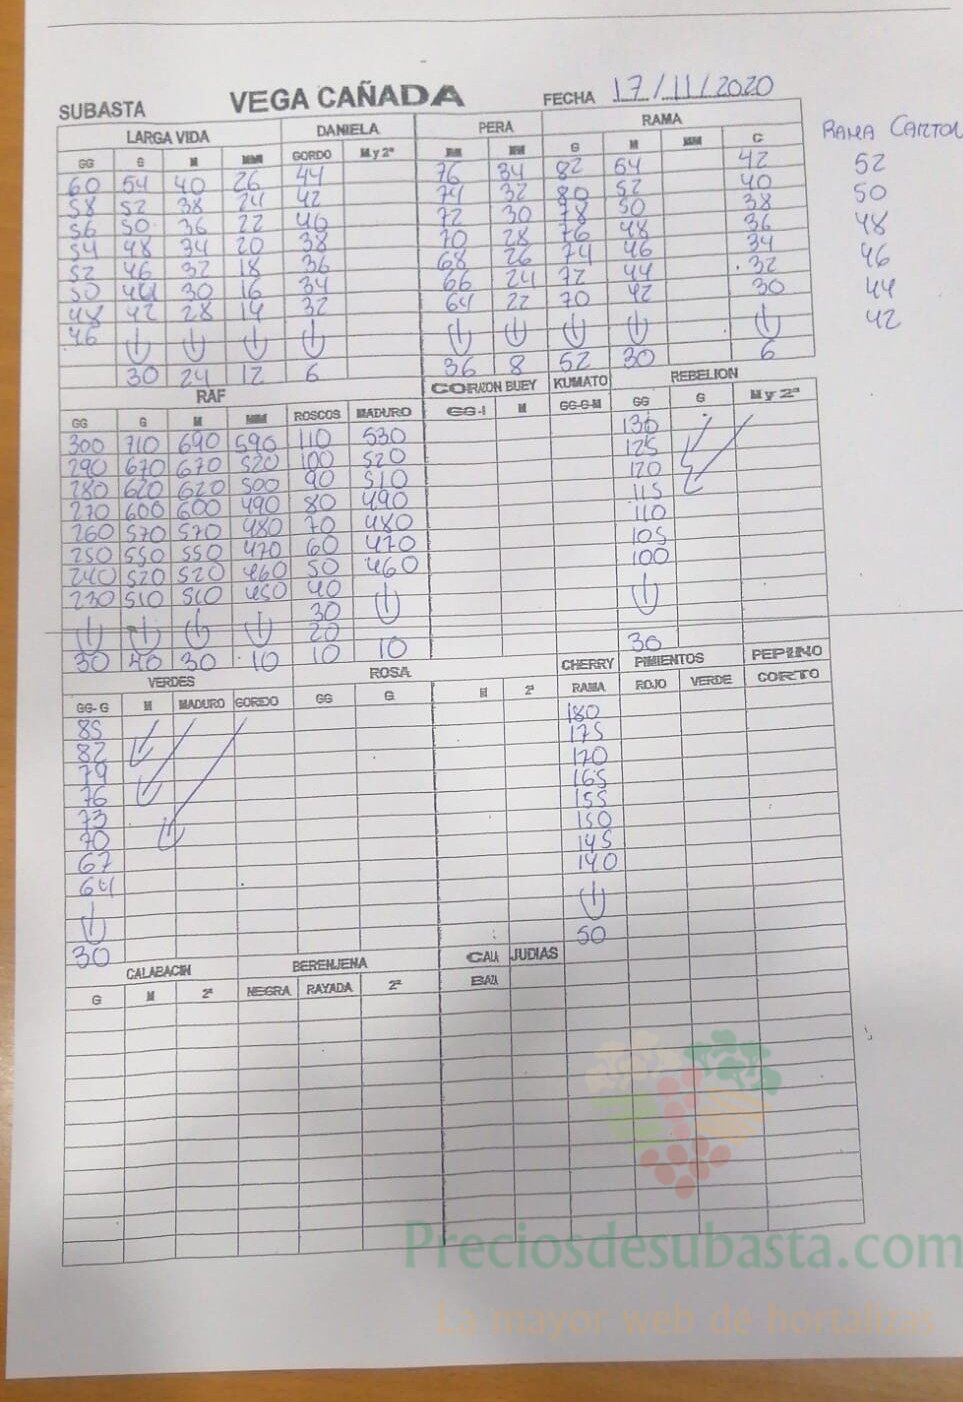 SUBASTA VEGA CAÑADA FECHA 17/11/2020
LARGA VIDA DANIELA PERA RAMA RAMA CARTON
GG G M MM GORDO M y 2ª M MM G M MM C
60 54 40 26 44 76 34 82 54 42 52
58 52 38 24 42 74 32 80 52 40 50
56 50 36 22 40 72 30 78 50 38 48
54 48 34 20 38 70 28 76 48 36 46
52 46 32 18 36 68 26 74 46 34 44
50 44 30 16 34 66 24 72 44 32 42
48 42 28 14 32 64 22 70 42 30
46
30 24 12 6 36 8 52 30 6
RAF CORAZON BUEY KUMATO REBELION
GG G M MM ROSCOS MADURO GG-I M GG-G-M GG G M y 2ª
300 710 690 590 110 530 130
290 670 670 520 100 520 125
280 620 620 500 90 510 120
270 600 600 490 80 490 115
260 570 570 480 70 480 110
250 550 550 470 60 470 105
240 520 520 460 50 460 100
230 510 510 450 40
30
20
30 40 30 10 10 10 30
VERDES ROSA CHERRY PIMIENTOS PEPINO
GG-G M MADURO GORDO GG G M 2ª RAMA ROJO VERDE CORTO
85 180
82 175
79 170
76 165
73 155
70 150
67 145
64 140
30 50
CALABACIN BERENJENA CALA JUDIAS
G M 2ª NEGRA RAYADA 2ª BAZA
Preciosdesubasta.com
La mayor web de hortalizas